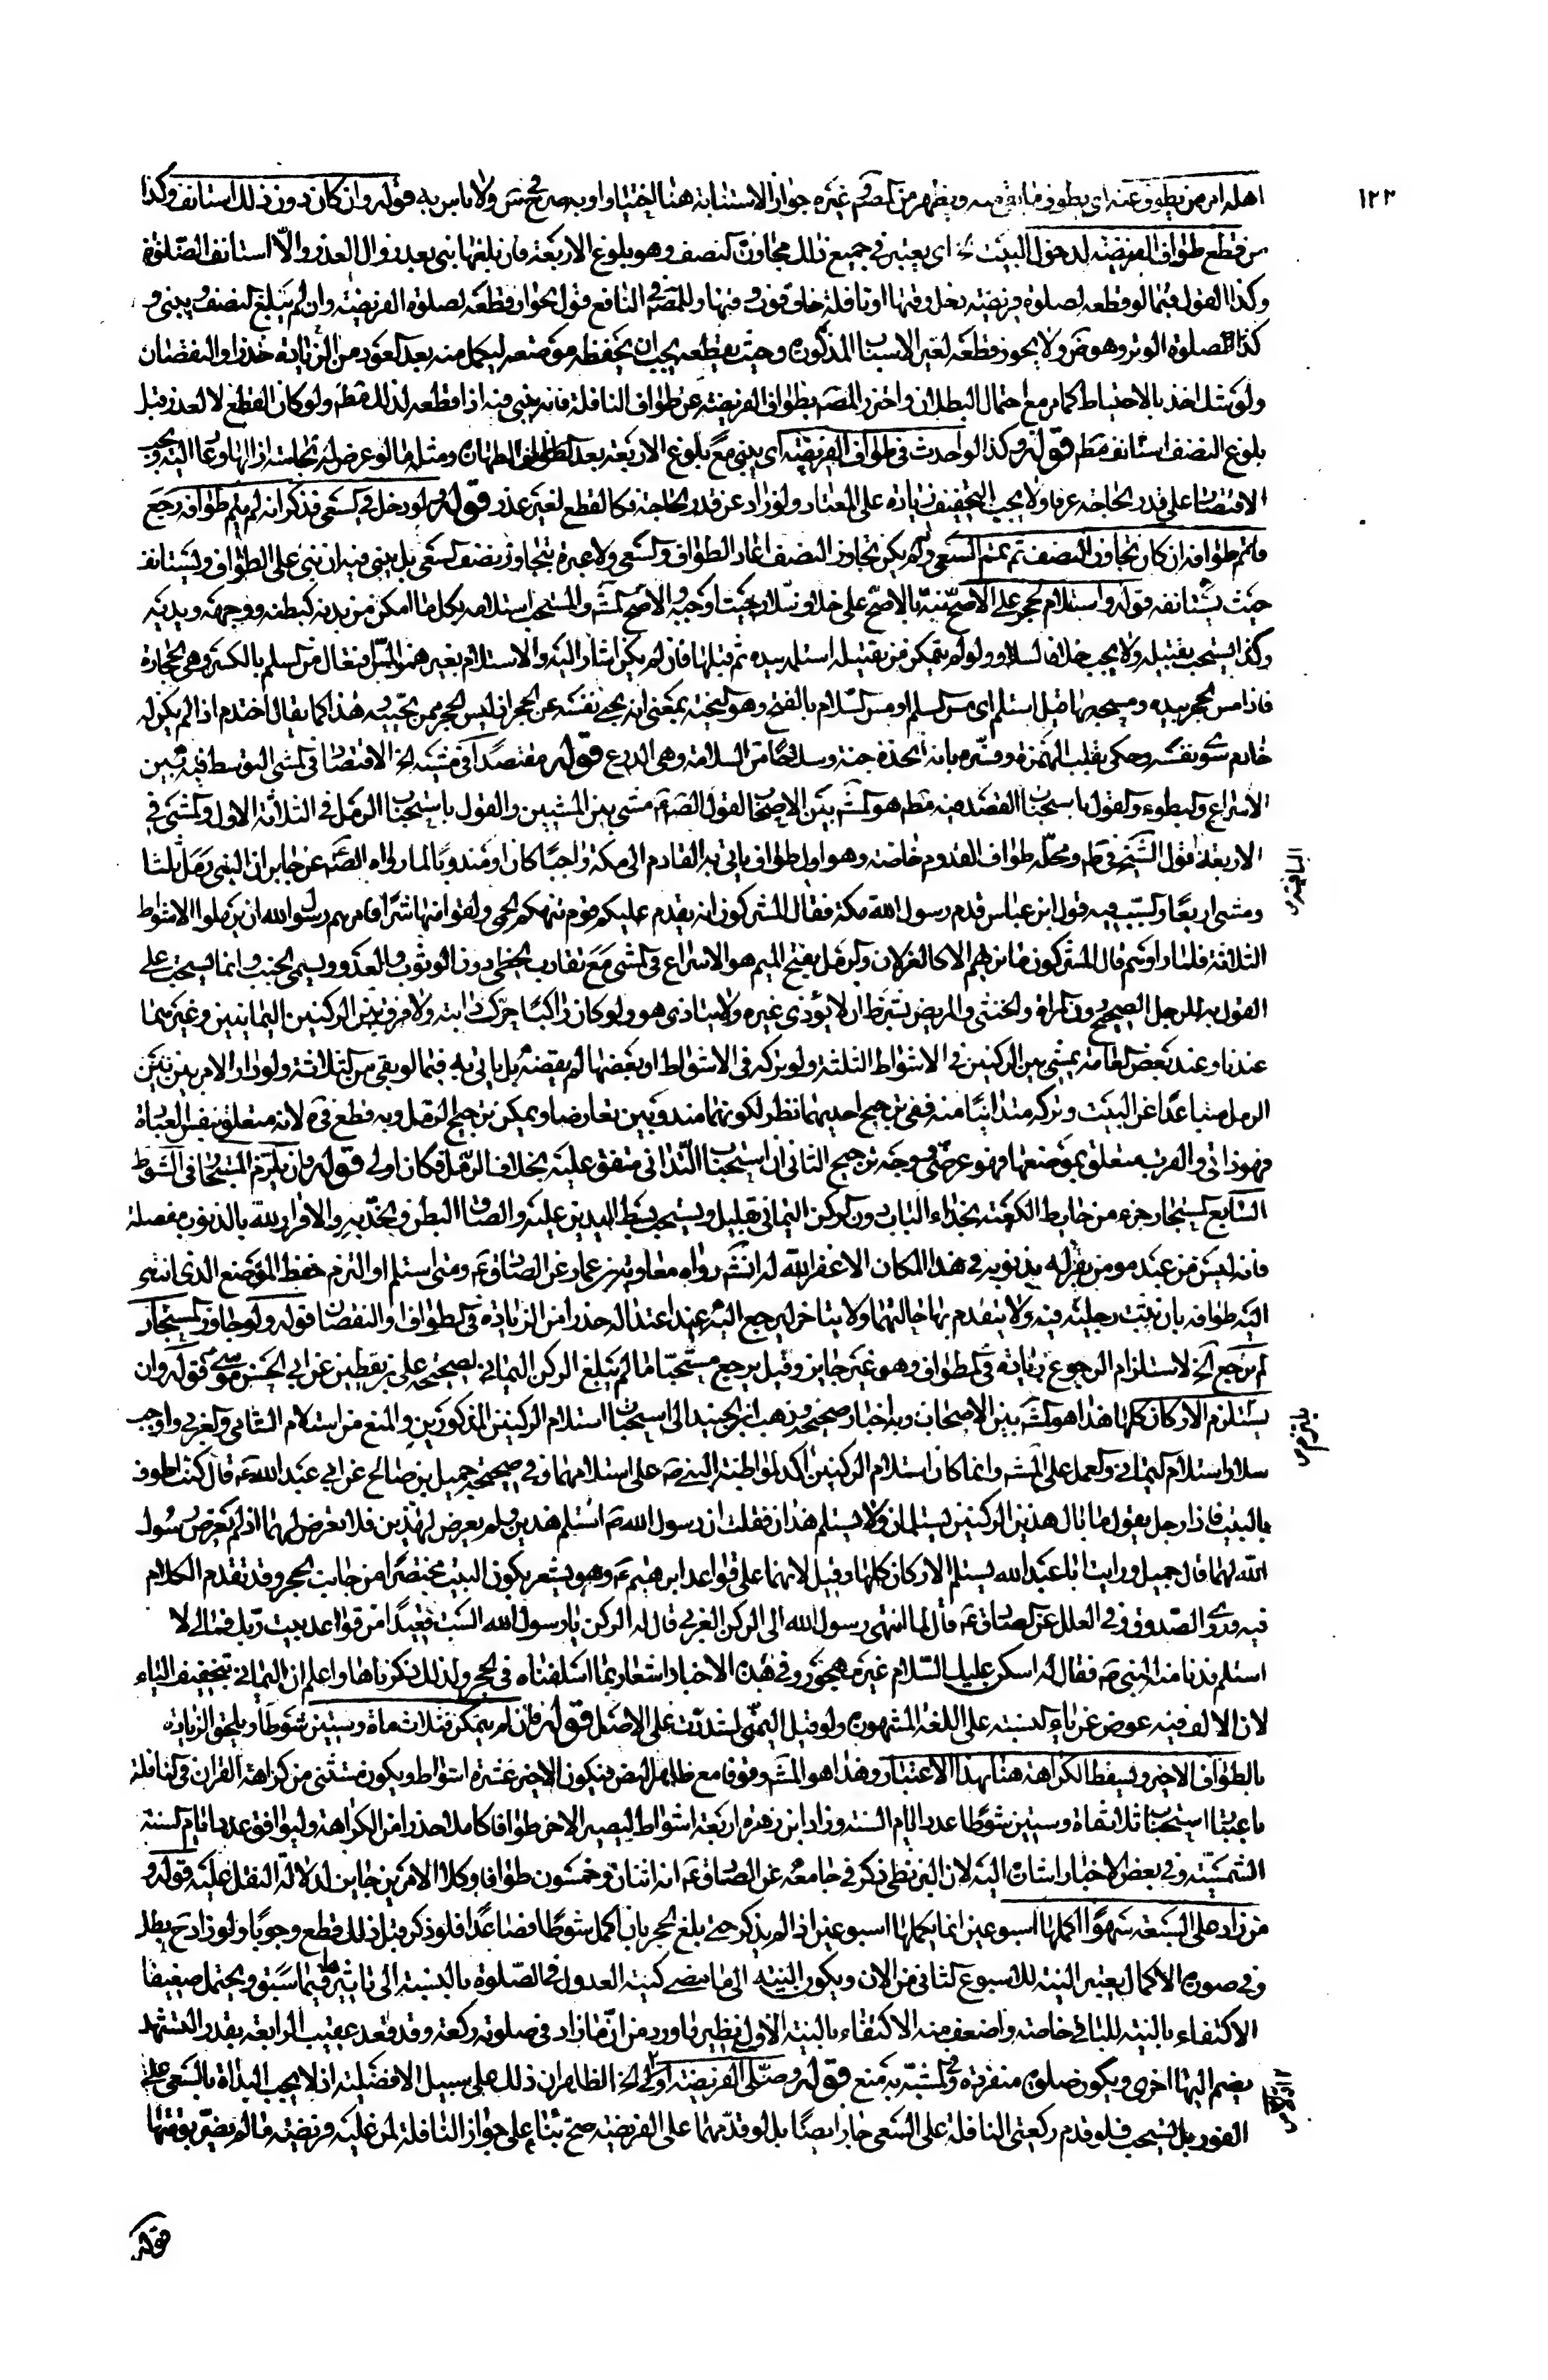 ١٢٣
اهله امر من يطوف عنه اى يطوف ما بقى منه ويظهر من المصر وغيره جواز الاستنابة هنا اختيارا وبه صرح فى س ولا باس به قوله وان كان دون ذلك استانف وكذا
من قطع طواف الفريضة لدخول البيت الخ اى يعتبر فى جميع ذلك مجاوزة النصف وهو بلوغ الاربعة فان بلغها بنى بعد زوال العذر والّا استانف الصلوة
وكذا القول فيما لو قطعه لصلوة فريضة دخل وقتها او نافلة خاف فوت وقتها وللمصر فى النافع قول بجواز قطعه لصلوة الفريضة وان لم يبلغ النصف ويبنى و
كذا لصلوة الوتر وهو ض ولا يجوز قطعه لغير الاسباب المذكورة وحيث يقطعه يجب ان يحفظ موضعه ليكمل منه بعد العود من الزيادة حذرا والنقصان
ولو شك اخذ بالاحتياط كما مر مع احتمال البطلان واحترز المصر بطواف الفريضة عن طواف النافلة فانه يبنى فيه اذا قطعه لذلك مطم ولو كان القطع لا لعذر قبل
بلوغ النصف استانف مطم قوله وكذا لو احدث فى طواف الفريضة اى يبنى مع بلوغ الاربعة بعد الطهارة ومثله ما لو عرض له نجاسة ازالها وعاد اليه ويجب
الاقتصار على قدر الحاجة عرفا ولا يجب التخفيف زيادة على المعتاد ولو زاد عن قدر الحاجة فكالقطع لغير عذر قوله ولو دخل فى السعى فذكر انه لم يتم طوافه رجع
فاتم طوافه ان كان تجاوز النصف ثم تمم السعى ولو لم يكن تجاوز النصف اعاد الطواف والسعى ولا عبرة بتجاوز نصف السعى بل يبنى فيه ان بنى على الطواف ويستانف
حيث يستانفه قوله واستلام الحجر على الاصح نبّه بالاصح على خلاف سلار حيث اوجبه والاصح المشهور والمستحب استلامه بكل ما امكن من بدنه كبطنه ووجهه ويديه
وكذا يستحب تقبيله ولا يجب خلافا لسلار ولو لم يتمكن من تقبيله استلمه بيده ثم قبلها فان لم يكن اشار اليه والاستلام بغير همز المسّ افتعال من السلم بالكسر وهى الحجارة
فاذا مس الحجر بيده ومسحه بها قيل استلم اى مس السلم او من السّلام بالفتح وهو التحية بمعنى انه يحيى نفسه عن الحجر اذ ليس الحجر ممن يحيّيه هذا كما يقال اختدم اذا لم يكن له
خادم سوى نفسه وحكى بقلب الهمزة وفسّره بانه اتخذه جنة وسلاحا من السلامة وهى الدرع قوله مقتصدا فى مشيه الخ الاقتصاد فى المشى التوسط فيه بين
الاسراع والبطوء والقول باستحباب القصد فيه مطم هو المشهور بين الاصحاب لقول الصادق ع مشى بين المشيين والقول باستحباب الرمل فى الثلاثة الاول والمشى فى
الاربعة قول الشيخ فى ط ومحلّه طواف القدوم خاصة وهو اول طواف ياتى به القادم الى مكة واجبا كان او مندوبا لما رواه العامة عن جابر ان النبى رمل ثلثا
الباقية
ومشى اربعا والسبب فيه قول ابن عباس قدم رسول الله مكة فقال المشركون انه يقدم عليكم قوم تنهكهم الحمى ولقوا منها شرّا فامرهم رسول الله ان يرملوا الاشواط
الثلاثة فلما راوهم قال المشركون ما نراهم الا كالغزلان والرمل بفتح الميم هو الاسراع فى المشى مع تقارب الخطى دون الوثوب والعدو ويسمى الخبب وانما يستحب على
القول به للرجل الصحيح دون المراة والخنثى والمريض بشرط ان لا يؤذى غيره ولا يتاذى هو ولو كان راكبا حرك دابته ولا فرق بين الركنين اليمانيين وغيرهما
عندنا وعند بعض العامة يمشى بين الركنين فى الاشواط الثلثة ولو تركه فى الاشواط او بعضها لم يقضه بل ياتى به فيما لو بقى من الثلاثة ولو دار الامر بين
الرمل متباعدا عن البيت وتركه متدانيا منه ففى ترجيح احديهما نظر لكونهما مندوبين تعارضا ويمكن ترجيح الرمل وبه قطع فى س لانه متعلق بنفس العبادة
فهو ذاتى والقرب متعلق بموضعها فهو عرضى ووجه ترجيح الثانى ان استحباب التدانى متفق عليه بخلاف الرمل فكان اولى قوله وان يلتزم المستجار فى الشوط
السابع المستجار جزء من حايط الكعبة بحذاء الباب دون الركن اليمانى بقليل ويستحب بسط اليدين عليه والصاق البطن والخد به والاقرار لله بالذنوب مفصلة
فانه ليس من عبد مؤمن يقر لله بذنوبه فى هذا المكان الا غفر الله له انشاء رواه معاوية بن عمار عن الصادق ع ومتى استلم او التزم حفظ الموضع الذى انتهى
اليه طوافه بان يثبت رجليه فيه ولا يتقدم بهما حالتهما ولا يتاخر ليرجع اليه عند اعتداله حذرا من الزيادة فى الطواف او النقصان قوله ولو جاوز المستجار
لم يرجع الخ لاستلزام الرجوع زيادة فى الطواف وهو غير جايز وقيل يرجع مستحبا ما لم يبلغ الركن اليمانى لصحيحة على بن يقطين عن ابى الحسن موسى قوله وان
يستلزم الاركان كلها هذا هو المشهور بين الاصحاب وبه اخبار صحيحة وذهب ابن الجنيد الى استحباب استلام الركنين المذكورين والمنع من استلام الشامى والغربى واوجب
سلار استلام اليمانى والعمل على المشهور وانما كان استلام الركنين اكد لمواظبة النبى ص على استلامهما وفى صحيحة جميل بن صالح عن ابى عبد الله ع قال كنت اطوف
بالبيت فاذا رجل يقول ما بال هذين الركنين يستلمان ولا يستلم هذان فقلت ان رسول الله ص استلم هذين ولم يعرض لهذين فلا تعرض لهما اذ لم يعرض رسول
الله لهما قال جميل ورايت ابا عبد الله يستلم الاركان كلها وقيل لانهما على قواعد ابرهيم ع وهو يشعر بكون البيت مختصرا من جانب الحجر وقد تقدم الكلام
فيه وروى الصدوق فى العلل عن الصادق ع قال لما انتهى رسول الله الى الركن الغربى قال له الركن يا رسول الله الست قعيدا من قواعد بيت ربّك فمالى لا
استلم فدنا منه النبى ص فقال له اسكن عليك السلام غير مهجور وفى هذه الاخبار اشعار بما اسلفناه فى الحجر ولذلك ذكرناها واعلم ان اليمانى بتخفيف الياء
لان الالف فيه عوض عن ياء النسبة على اللغة المشهورة ولو قيل اليمنى لشددت على الاصل قوله فان لم يتمكن فثلاث ماة وستين شوطا ويلحق الزيادة
بالطواف الاخير ويسقط الكراهة هنا بهذا الاعتبار وهذا هو المشهور وقوفا مع ظاهر النص فيكون الاخير عشرة اشواط ويكون مستثنى من كراهة القران فى النافلة
باعتبار استحباب ثلاثماة وستين شوطا عدد ايام السنة وزاد ابن زهرة اربعة اشواط ليصير الاخر طوافا كاملا حذرا من الكراهة وليوافق عدد ايام السنة
الشمسية وفى بعض الاخبار اشارة اليه لان البزنطى ذكر فى جامعه عن الصادق ع انه اثنان وخمسون طوافا وكلا الامرين جايز لدلالة النقل عليه قوله و
من زاد على السبعة سهوا اكملها اسبوعين انما يكملها اسبوعين اذا لم يذكر حتى بلغ الحجر بان اكمل شوطا فصاعدا فلو ذكر قبل ذلك قطع وجوبا ولو زاد ح بطل
وفى صورة الاكمال يعتبر النية للاسبوع الثانى من الان ويكون النية الى ما مضى كنية العدول فى الصلوة بالنسبة الى تاثيرها فيما سبق ويحتمل ضعيفا
الاكتفاء بالنية للباقى خاصة واضعف منه الاكتفاء بالنية الاولى نظير ما ورد من ان من زاد فى صلوته ركعة وقد قعد عقيب الرابعة بقدر التشهد
يضم اليها اخرى ويكون صلوة منفردة وفى المشبه به منع قوله وصلى الفريضة اولا الخ الظاهر ان ذلك على سبيل الافضلية اذ لا يجب البداة بالسعى على
الفور بل يستحب فلو قدم ركعتى النافلة على السعى جاز ايضا بل لو قدمهما على الفريضة صح بناء على جواز النافلة لمن عليه فريضة ما لم يضر بوقتها
قوله